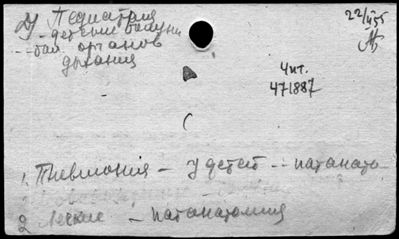 2) Педиатрия
- детские болезни
- бол. органов
дыхания
22/IV55
Чит.
471887
1. Пневмония - у детей -- патанато
2. Легкие - патанатомия